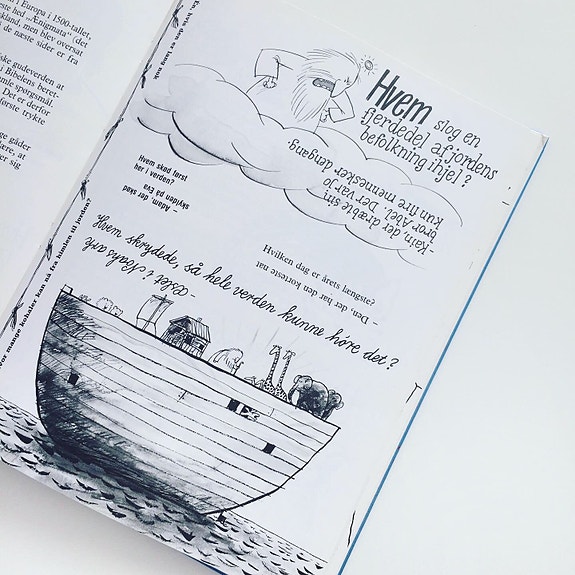 i Europa i 1500-tallet,
ste hed „Ænigmata“ (det
kland, men blev oversat
de næste sider er fra
ske gudeverden at
i Bibelens beret-
mle spørgsmål.
Det er derfor
ørste trykte
ge gåder
ære, at
er sig
vor mange kabaler kan nå fra himlen til jorden?
En, hvis den er lang nok
Hvem slog en
fjerdedel af jordens
befolkning ihjel?
-Kain, der dræbte sin
bror Abel. Der var jo
kun fire mennesker dengang.
Hvem skød først
her i verden?
– Adam, der skød
skylden på Eva
Hvilken dag er årets længste?
– Den, der har den korteste nat
Hvem skrydede, så hele verden kunne høre det?
-Æslet i Noahs ark